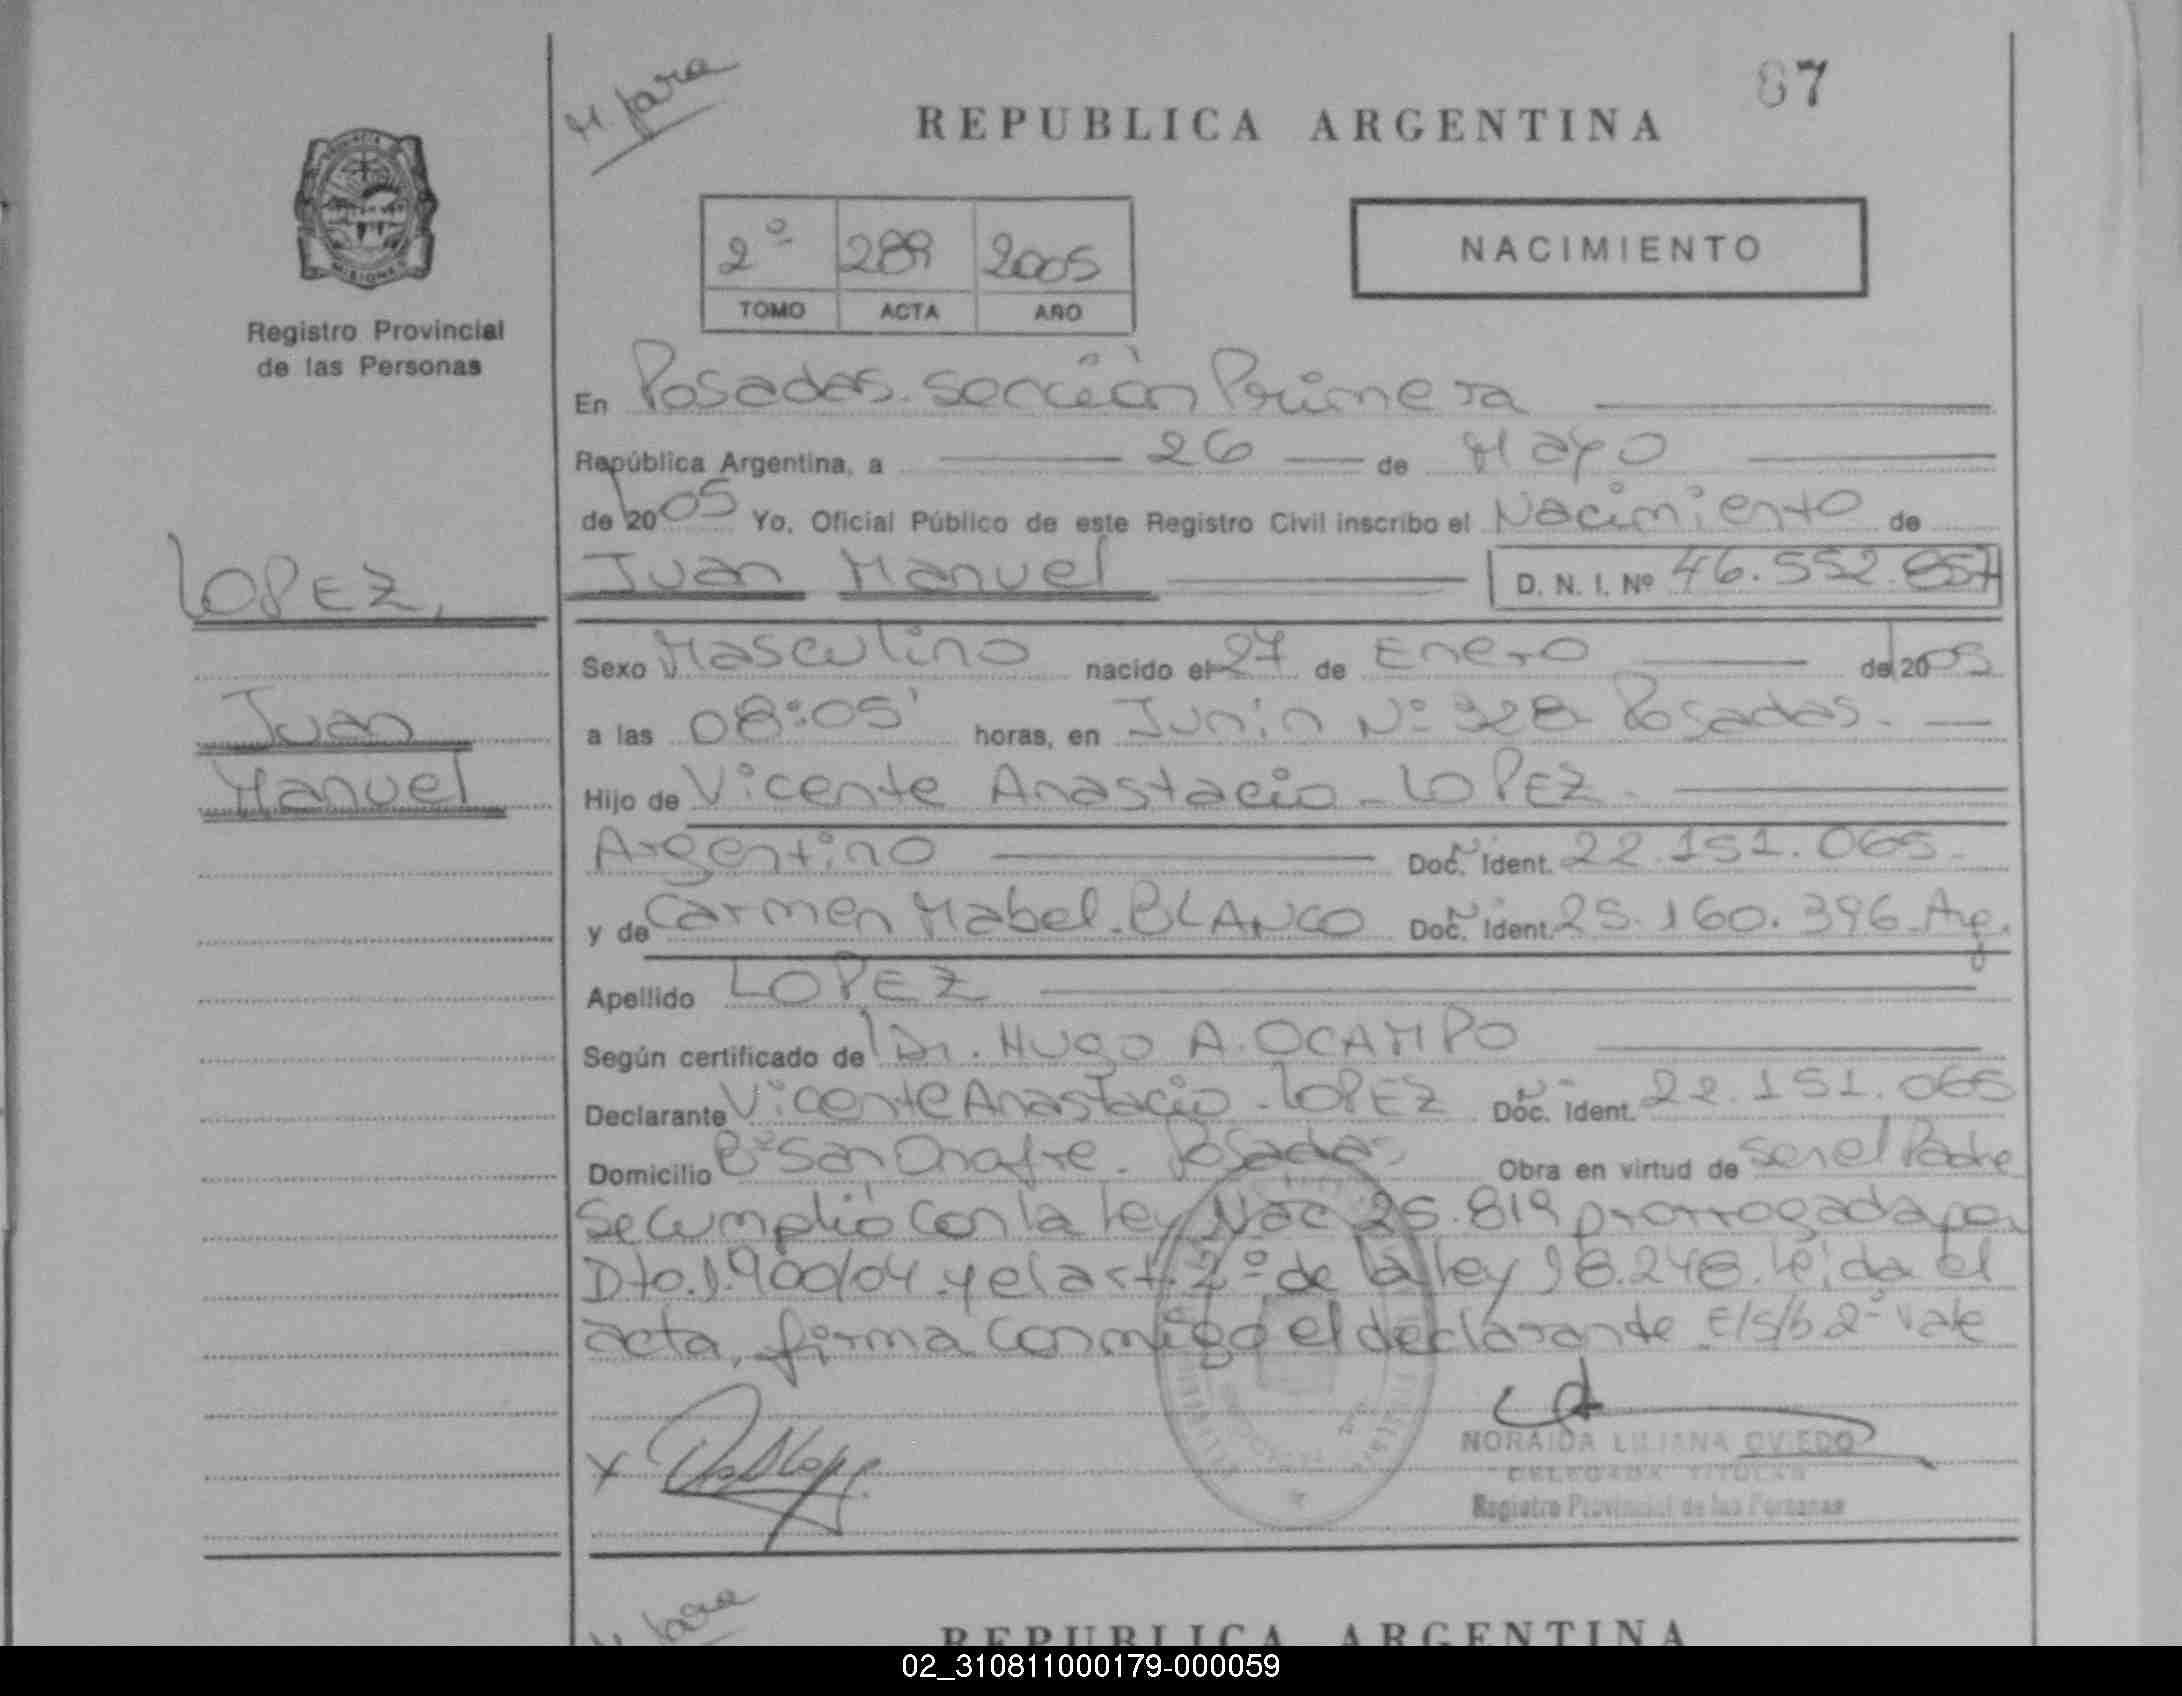 M Jara
87
REPUBLICA ARGENTINA
2º 289 2005
TOMO ACTA AÑO
NACIMIENTO
PROVINCIA
MISIONES
Registro Provincial
de las Personas
En Posadas. Sección Primera
República Argentina, a 26 de Mayo
de 2005 Yo, Oficial Público de este Registro Civil inscribo el Nacimiento de
LOPEZ, Juan Manuel D. N. I. Nº 46.552.857
Sexo Masculino nacido el 27 de Enero de 2005
Juan
a las 08:05' horas, en Junin Nº 328 Posadas.
Manuel
Hijo de Vicente Anastacio - LOPEZ.
Argentino Doc. Ident. 22.151.065.
y de Carmen Mabel. BLANCO Doc. Ident. 25.160.396 Arg.
Apellido LOPEZ
Según certificado de Dr. HUGO A. OCAMPO
Declarante Vicente Anastacio - LOPEZ Doc. Ident. 22.151.065
Domicilio Bº San Onofre. Posadas Obra en virtud de ser el Padre
Se cumplió con la Ley Nac 25.819 prorrogada por
Dto. 1.900/04 y el art. 2º de la ley 18.248. Leída el
acta, firma conmigo el declarante E/s/b 2º Vale
X
NORAIDA LILIANA OVIEDO
DELEGADA TITULAR
Registro Provincial de las Personas
REPUBLICA ARGENTINA
02_310811000179-000059